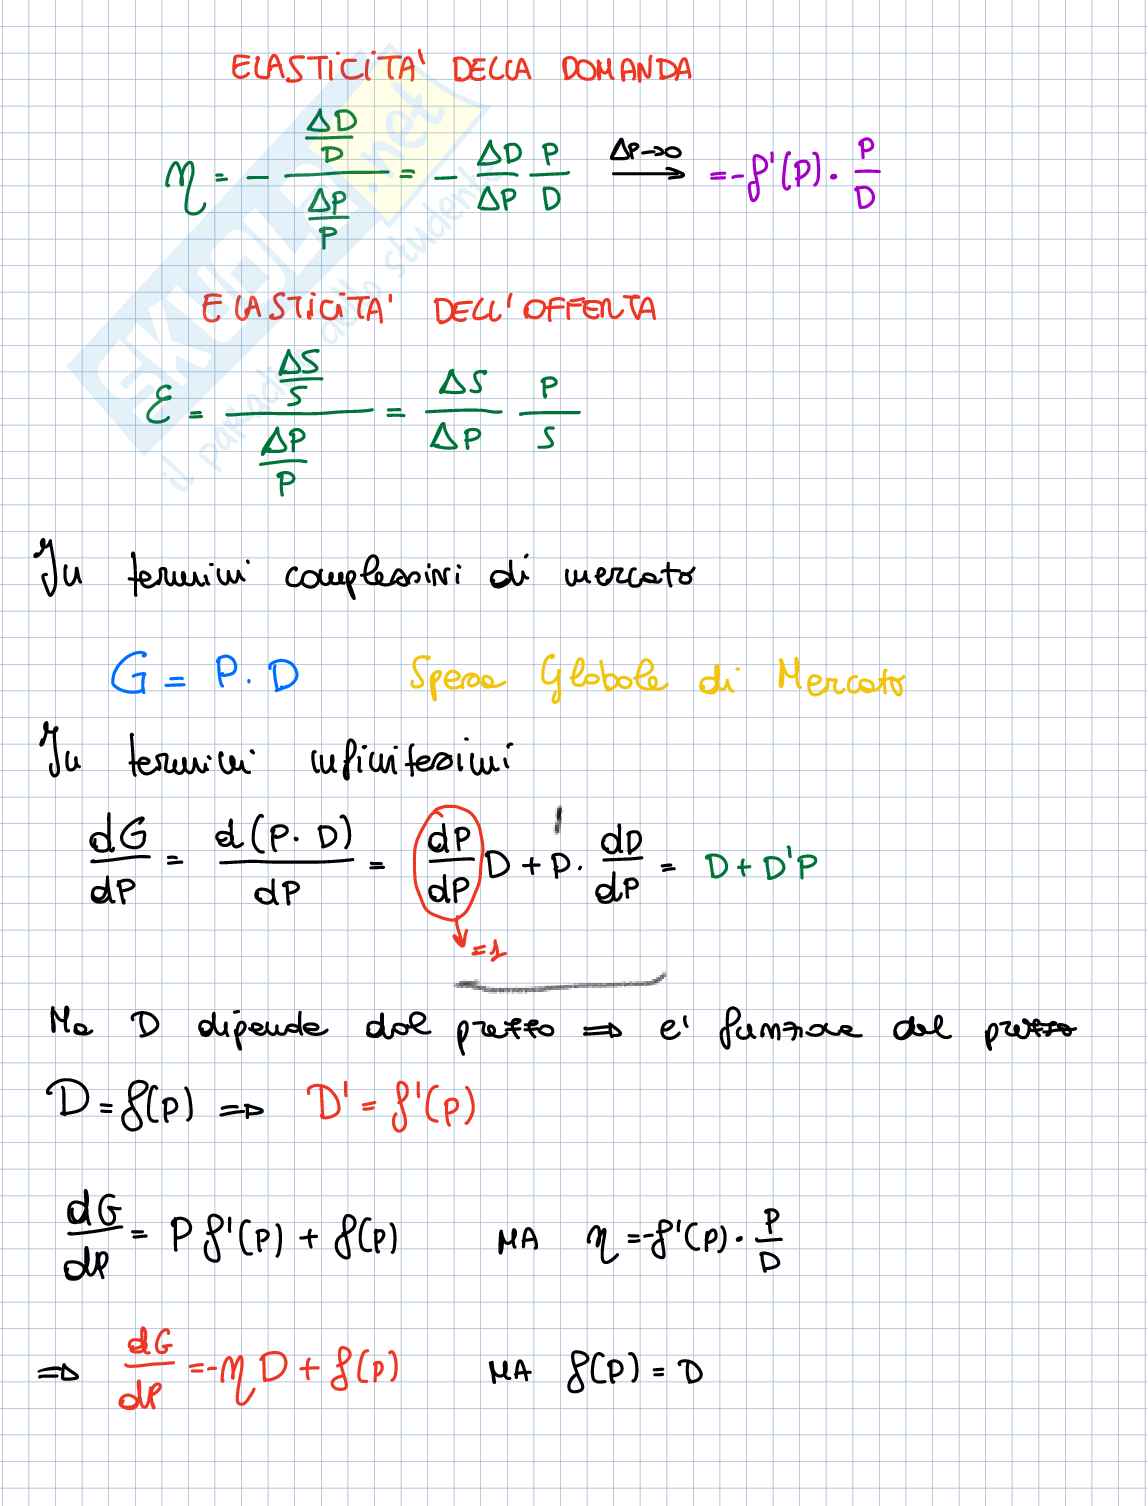 ELASTICITA' DELLA DOMANDA
η = - (ΔD/D)/(ΔP/P) = - ΔD/ΔP P/D ΔP→0 = -f'(P) · P/D
ELASTICITA' DELL'OFFERTA
ε = (ΔS/S)/(ΔP/P) = ΔS/ΔP P/S
In termini complessivi di mercato
G = P · D Spesa Globale di Mercato
In termini infinitesimi
dG/dP = d(P · D)/dP = dP/dP D + P · dD/dP = D + D'P
=1
Ma D dipende dal prezzo ⇒ e' funzione del prezzo
D = f(P) ⇒ D' = f'(P)
dG/dP = P f'(P) + f(P) MA η = -f'(P) · P/D
⇒ dG/dP = -η D + f(P) MA f(P) = D
SKUOLA.net
il paradiso dello studente